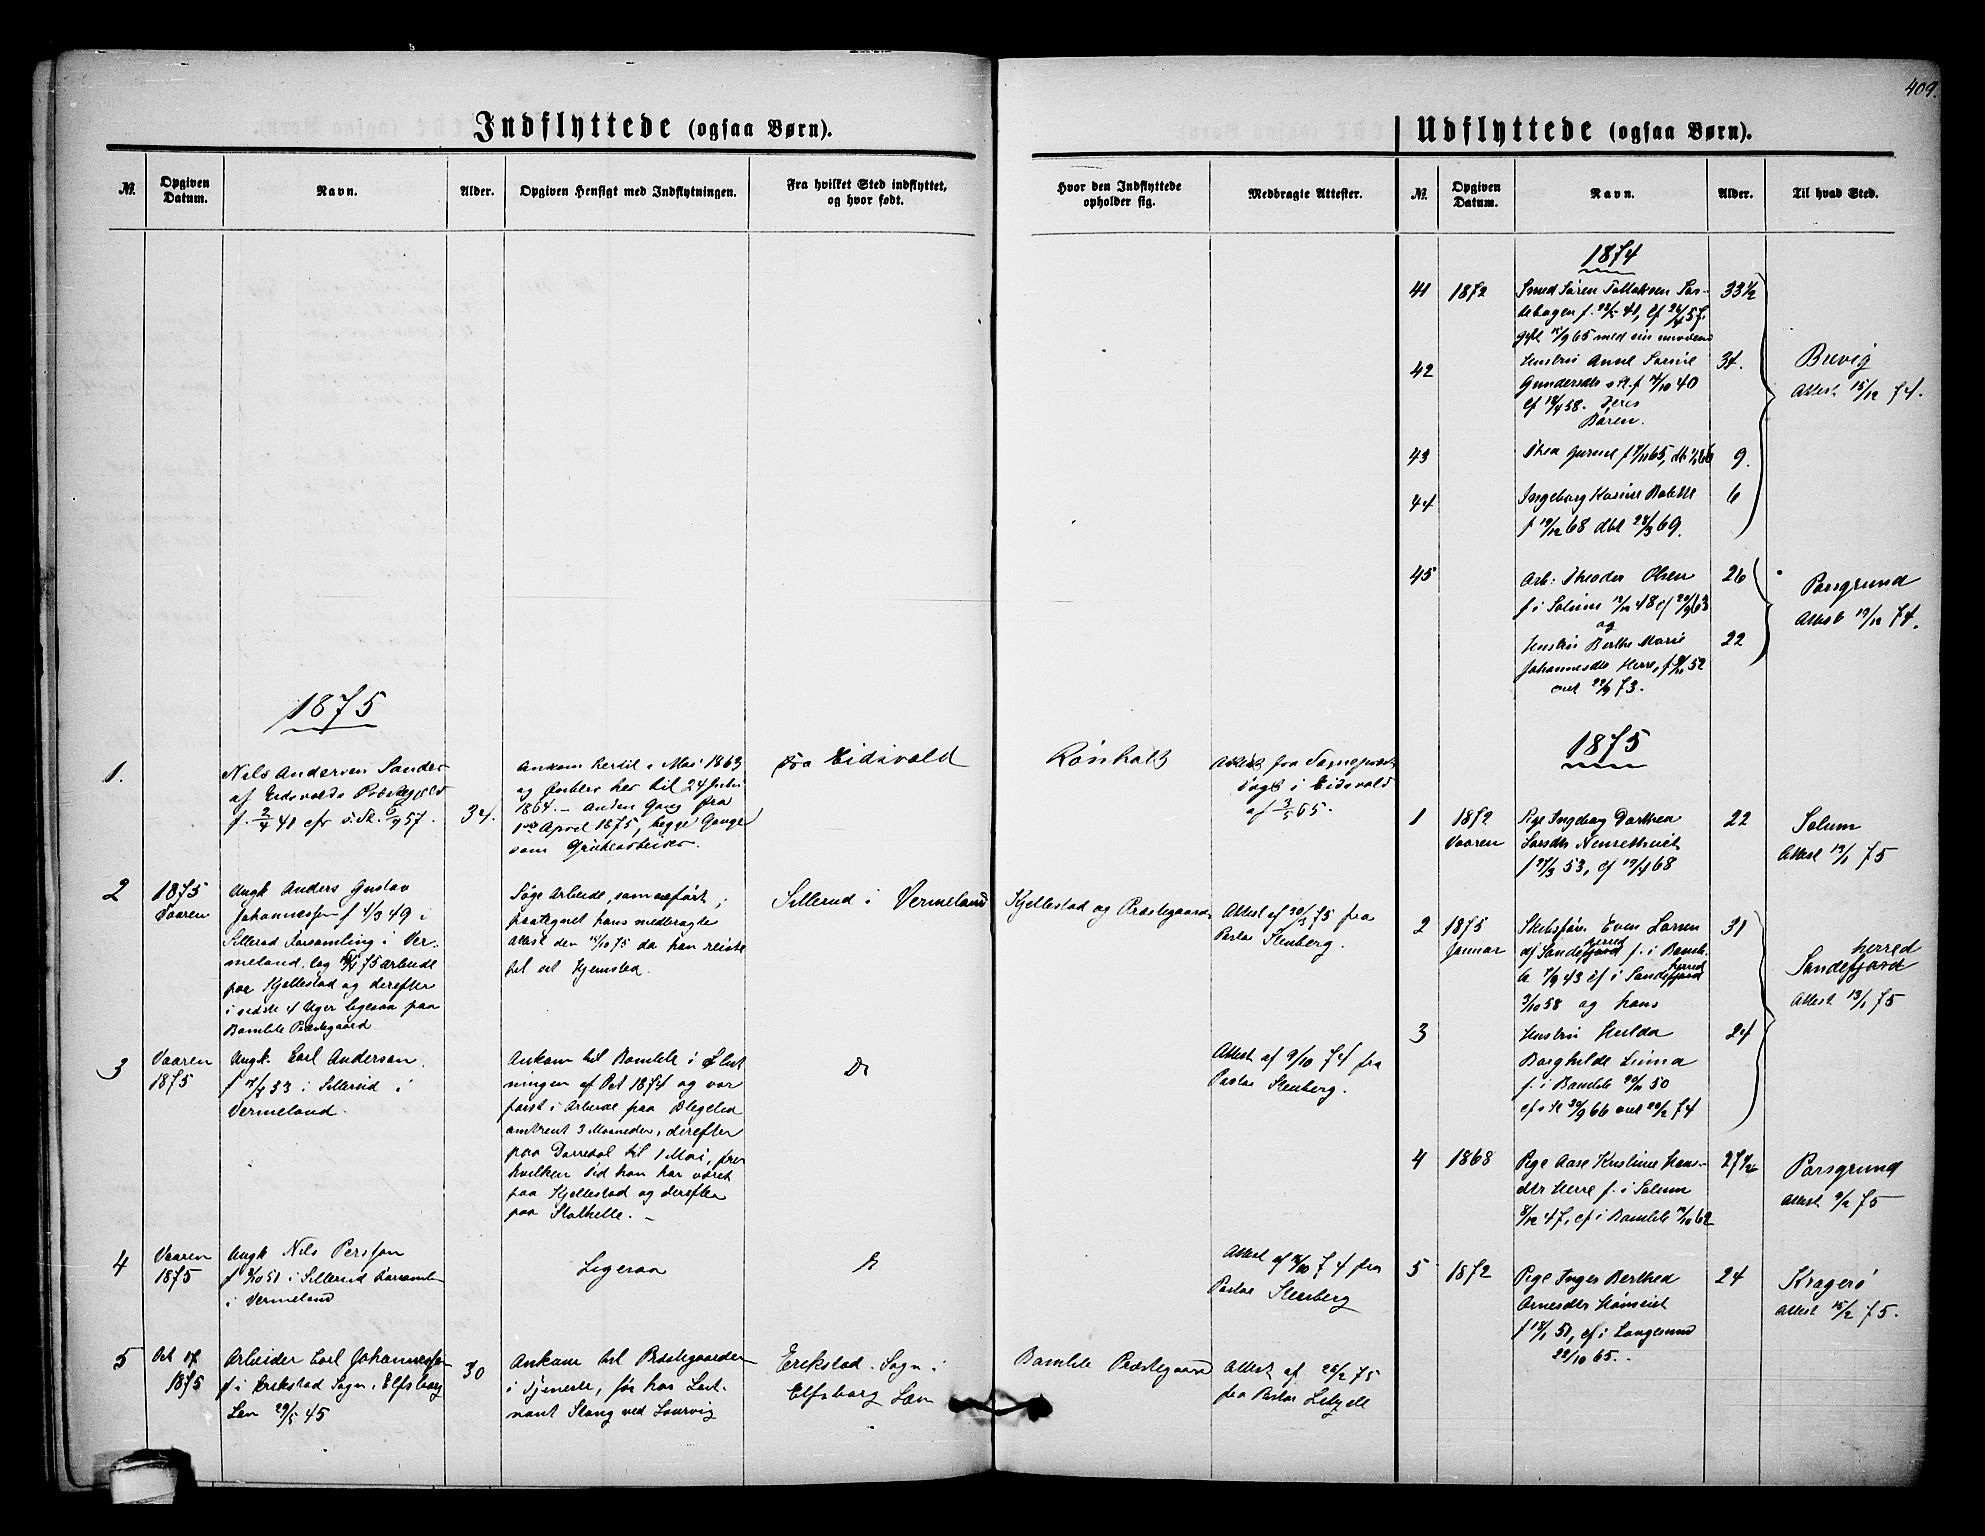 409.
Indflyttede (ogsaa Børn).
№.
Opgiven Datum.
Navn.
Alder.
Opgiven Hensigt med Indflytningen.
Fra hvilket Sted indflyttet, og hvor født.
Hvor den Indflyttede opholder sig.
Medbragte Attester.
1875
1.
Nils Andersen Sander
af Eidsvolds Præstegjeld
f. 2/4 41 cfr s. St. 57.
34.
Ankom hertil i Mai 1863
og forblev her til 24 Juli
1864. – Anden Gang fra
1ste April 1875, begge Gange
som Grubearbeider.
Fra Eidsvold
Rönholt
Attest fra Sognepræst
Vogt i Eidsvold
af 3/5 65.
2
1875
Vaaren
Ungk Anders Gustav
Johannessen f 4/3 49 i
Sillerud Forsamling i Ver-
meland, tog 75 arbeide
paa Kjellestad og derefter
i sidste 4 Uger ligesaa paa
Bamble Præstegaard
Söge Arbeide, samme
paategnet hans medbragte
Attest den 14/10 75 da han reiste
til sit Hjemsted.
Sillerud i Vermeland
Kjellestad og Præstegaard
Attest af 30/3 75 fra
Pastor Stenberg.
3
Vaaren
1875
Ungk. Carl Anderson
f 33 i Sillerud i
Vermeland.
Ankom til Bamble i Slut-
ningen af Oct 1874 og var
först i Arbeide paa Blegebæ
omtrent 3 Maaneder, derefter
paa Dorredal til 1 Mai, fra
hvilken Tid han har været
paa Kjellestad og derefter
paa Stathelle. –
Do
Attest af 9/10 74 fra
Pastor Stenberg.
4
Vaaren
1875
Ungk Nils Persson
f 51 i Sillerud Forsaml
i Vermeland
Ligesaa
Attest af 74 fra
Pastor Stenberg
5
Oct
1875
Arbeider Carl Johannessen
f i Erikstad Sogn, Elfsborg
Len 29/5 45
30
Ankom til Præstegaarden
i Tjeneste, för hos Leut-
nant Stang ved Laurvig
Erikstad Sogn i
Elfsborg Len
Bamble Præstegaard
Attest af 26/2 75
fra Pastor
Udflyttede (ogsaa Børn).
№.
Opgiven Datum.
Navn.
Alder.
Til hvad Sted.
1874
41
1872
Smed Sören Tollefsen
f. 41, cf 57,
gift 65 med sin
33 1/2
42
Hustru Anne Sorine
Gundersdtr s. St. f 40
cf 58. Deres
Børen.
34.
Brevig
Attest 15/12 74.
43
Thea f 65, db
9.
44
Ingeborg Karine Bolette
f 19/12 68 dbt 28/3 69.
6
45
Arb: Theodor Olsen
f i Solum 48 cf 63
og
26
Porsgrund
Attest 19/12 74.
Hustru Berthe Marie
Johannesdtr Herre, f 52
viet 73.
22
1875
1
1872
Vaaren
Pige Ingeborg Dorthea
Larsdtr
f 53, cf 68
22
Solum
Attest 75
2
1875
Januar
Skibsför: Even Larsen
af Sandeherred f. i Bamb-
le 7/9 43 cf i Sandeherred
3/10 58 og hans
31
Sandeherred
Attest 13/1 75
3
Hustru Hulda
Borghilde
f. i Bamble 50
cf s St 66 viet 74
24
4
1868
Pige Aase Kristine Hans-
dtr Herre f. i Solum
8/12 47, cf i Bamble 62
27
Porsgrund
Attest 9/2 75
5
1872
Pige Inger Berthea
Arnesdtr
f 18/1 51, cf i Langesund
22/10 65.
24
Kragerö
Attest 15/2 75.